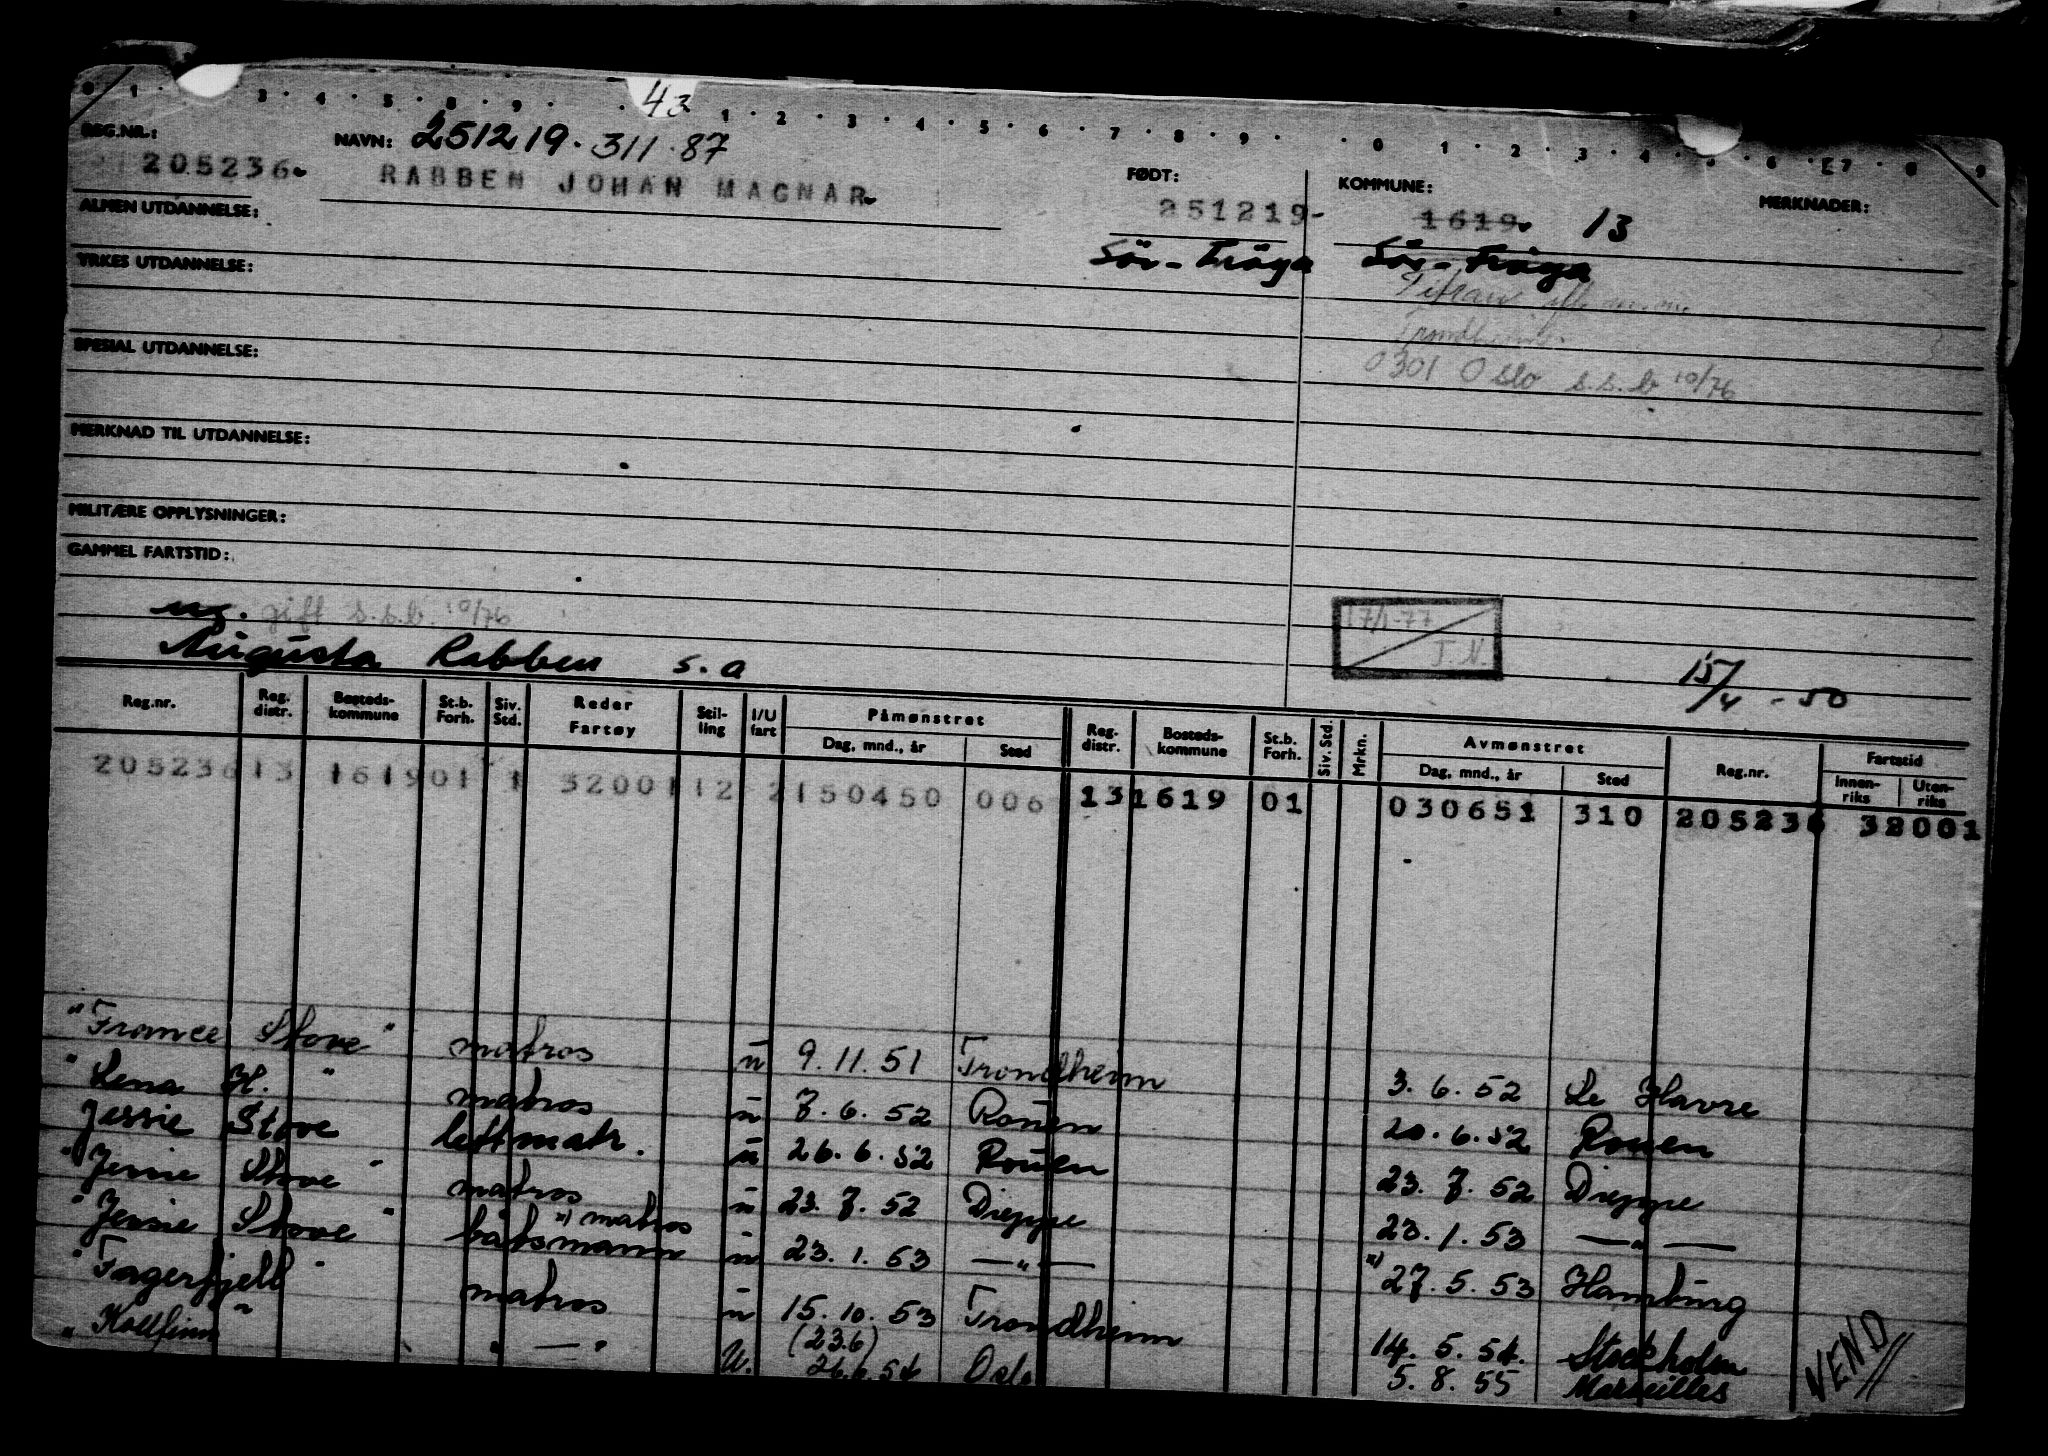 0 1 . 3 . 4 . 5 . 8 . 9 . . 43 1 . 2 . 3 . 4 . 5 . 6 . 7 . 8 . 9 . . 0 1 . 2 . 3 . 4 . 5 . 6 . 7 . 8 . 9
REG.NR.: NAVN: 251219. 311.87 FØDT: KOMMUNE: MERKNADER:
205236. RABBEN JOHAN MAGNAR. 251219- 1619. 13
ALMEN UTDANNELSE: Sör-Fröya Sör-Fröya
YRKES UTDANNELSE: Titran
Trondheim.
SPESIAL UTDANNELSE: 0301 Oslo s.s.b 10/76
MERKNAD TIL UTDANNELSE:
MILITÆRE OPPLYSNINGER:
GAMMEL FARTSTID:
ug. gift s.s.b. 10/76 17/1-77
Augusta Rabben s.a T.N. 15/4 - 50
Reg.nr. Reg. distr. Bosteds-kommune St.b. Forh. Siv. Std. Reder Fartøy Stil-ling I/U fart Påmønstret Dag, mnd., år Sted Reg. distr. Bosteds-kommune St.b. Forh. Siv. Std. Mrkn. Avmønstret Dag, mnd., år Sted Reg.nr. Fartstid Innen-riks Uten-riks
205236 13 1619 01 1 32001 12 2 150450 006 13 1619 01 030651 310 205236 32001
"France Stove" matros u 9.11.51 Trondheim 3.6.52 Le Havre
"Lena H." matros u 7.6.52 Rouen 20.6.52 Rouen
Jessie Stove lettmatr. u 26.6.52 Rouen 23.7.52 Dieppe
"Jessie Stove" matros u 23.7.52 Dieppe 23.1.53 —"—
"Jessie Stove" båtsmann x) matros u 23.1.53 —"— x) 27.5.53 Hamburg
"Fagerfjell" matros u 15.10.53 Trondheim 14.5.54. Stockholm
"Kollfinn" " — " U. (23.6) 26.6.54 Oslo 5.8.55 Marseilles
VEND